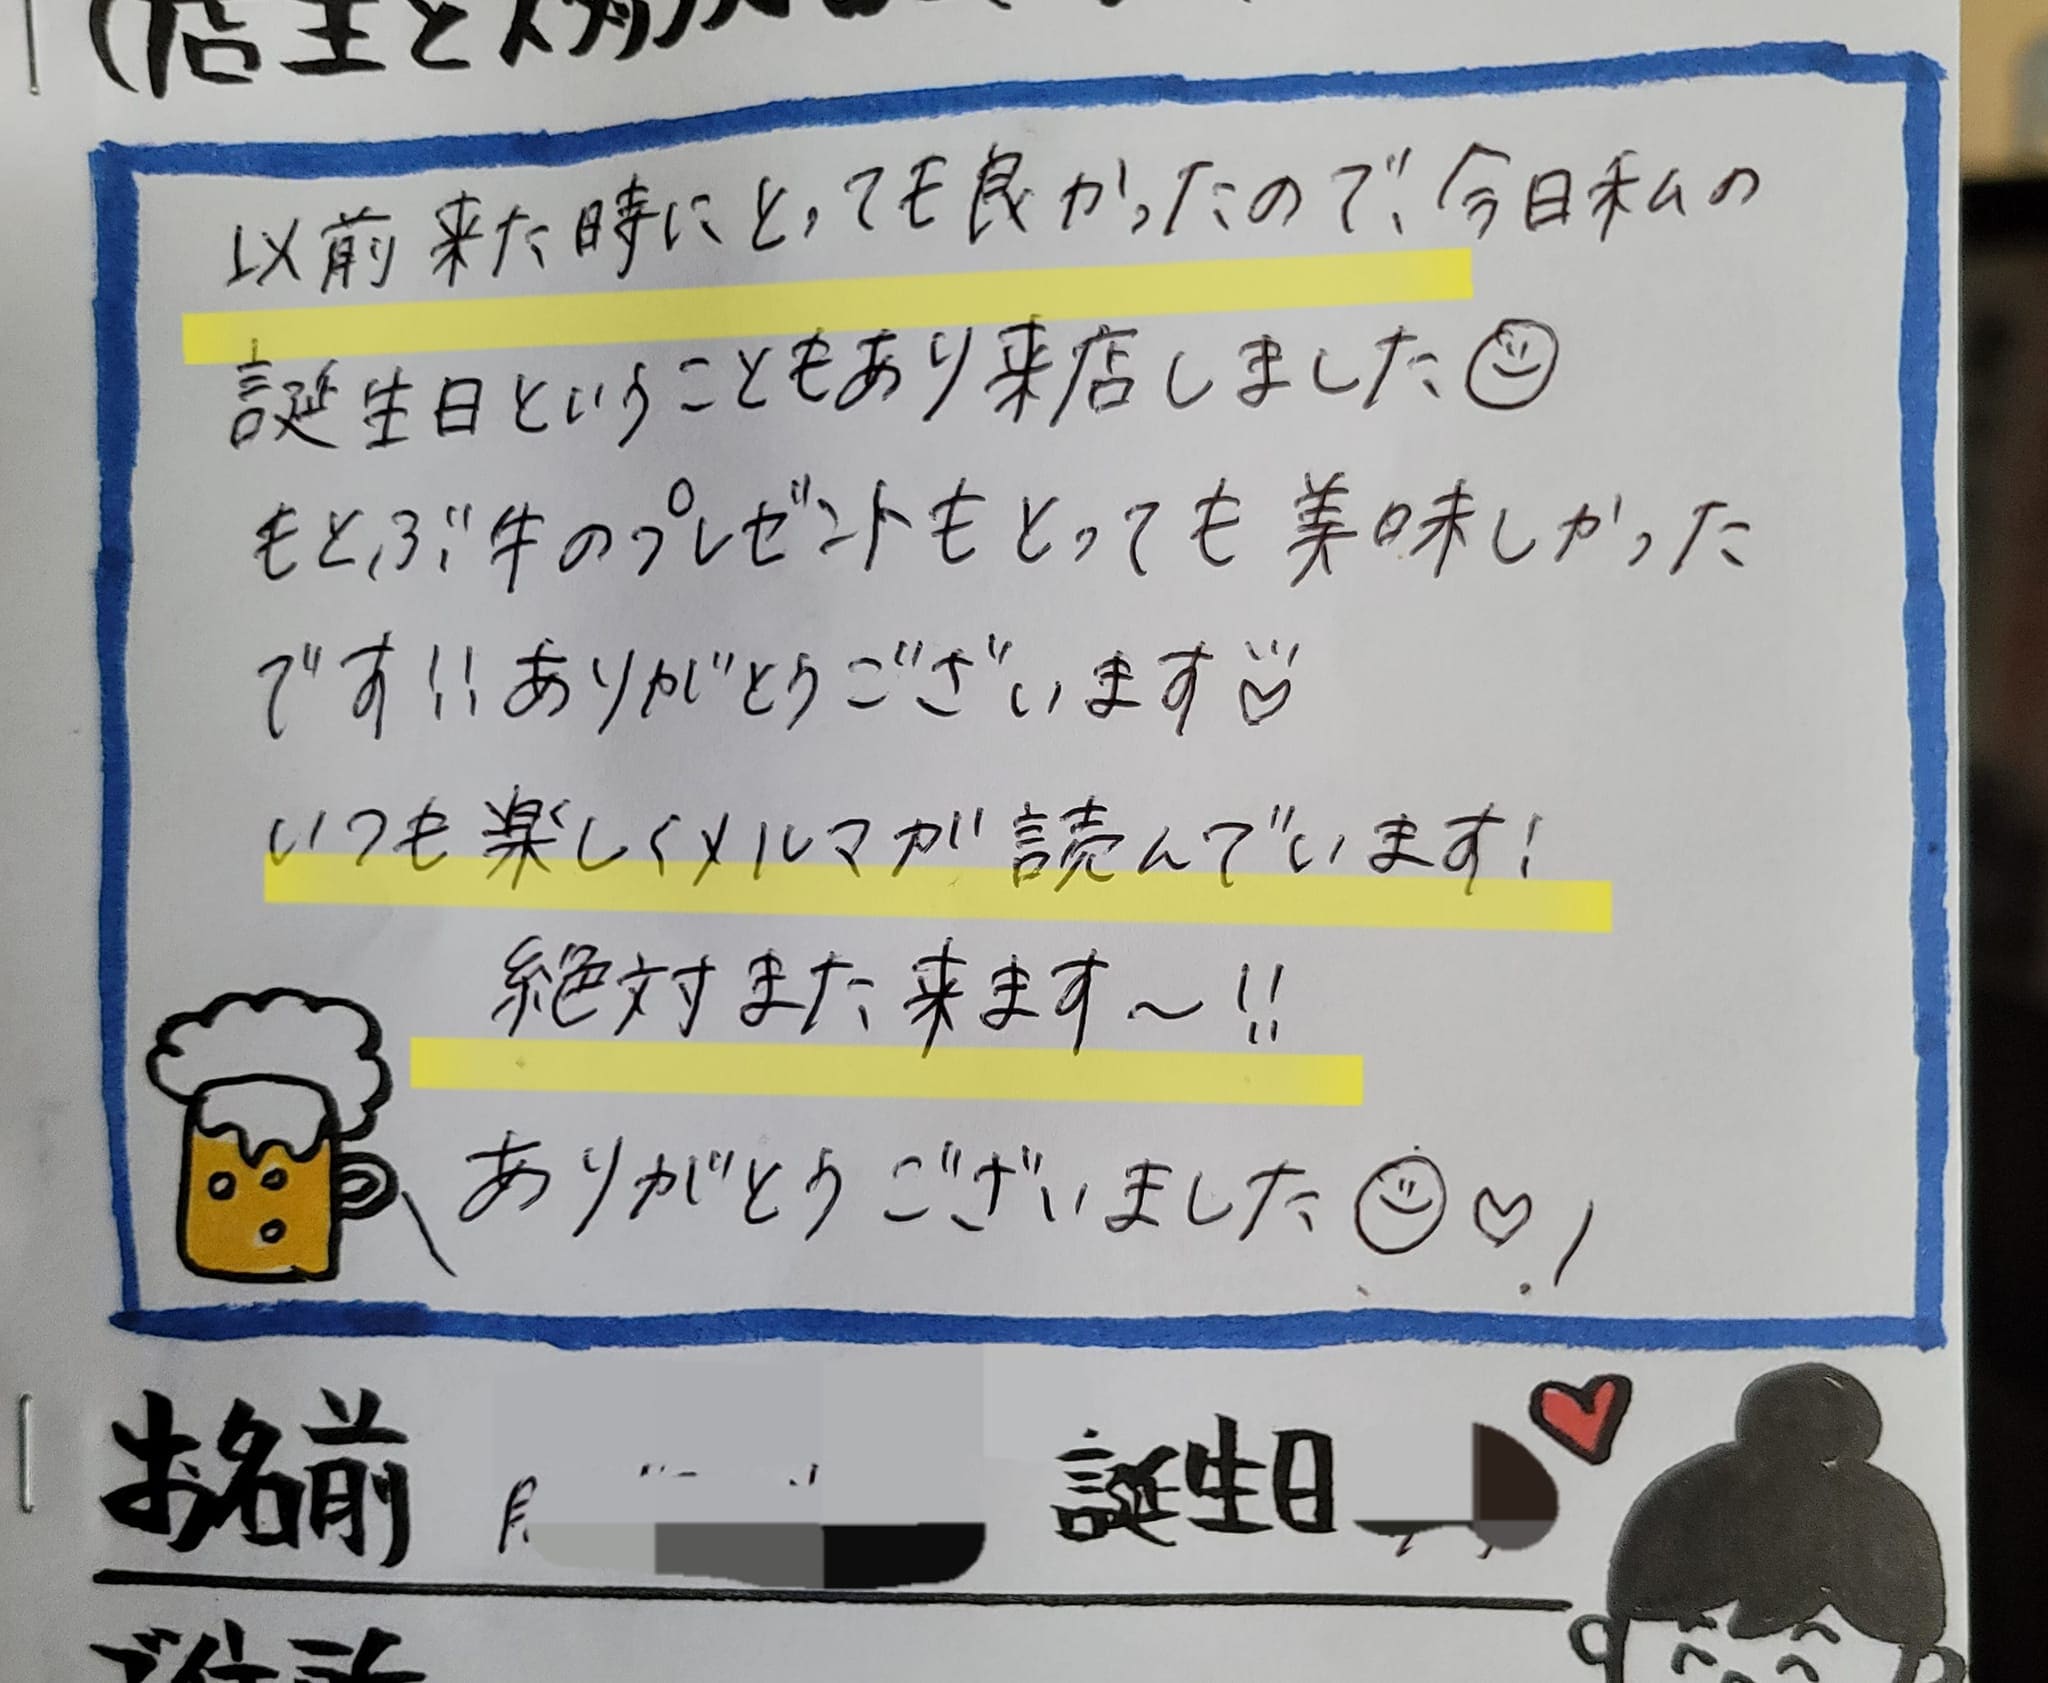 (店主と
以前来た時にとっても良かったので、今日私の
誕生日ということもあり来店しました
もとぶ牛のプレゼントもとっても美味しかった
です!!ありがとうございます♡
いつも楽しくメルマガ読んでいます!
絶対また来ます〜!!
\ありがとうございました♡!/
お名前 誕生日
ご住所